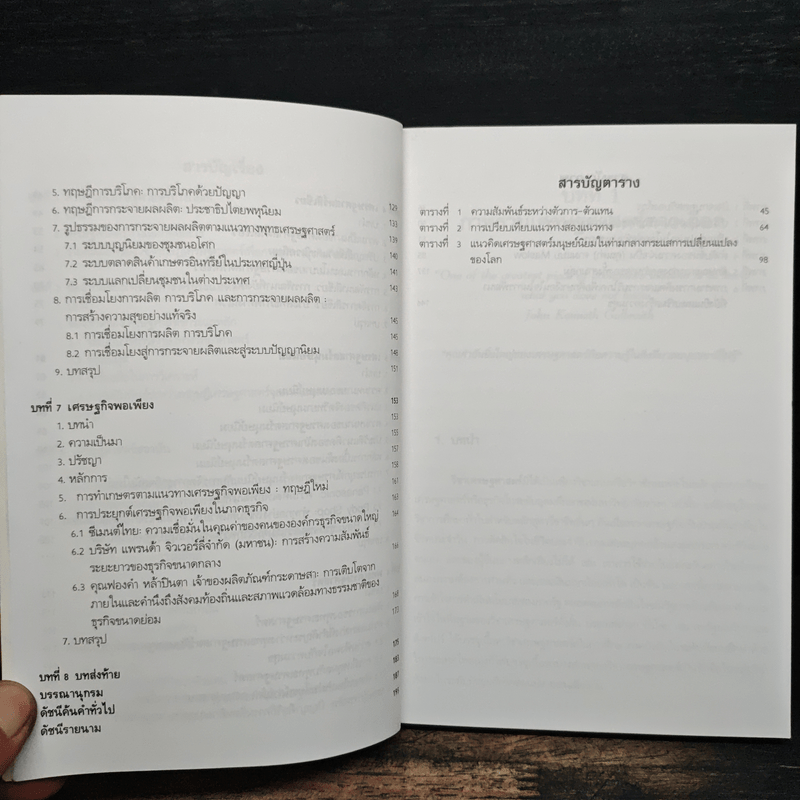 5. ทฤษฎีการบริโภค: การบริโภคด้วยปัญญา 129
6. ทฤษฎีการกระจายผลผลิต: ประชาธิปไตยพหุนิยม 133
7. รูปธรรมของการกระจายผลผลิตตามแนวทางพุทธเศรษฐศาสตร์ 139
7.1 ระบบบุญนิยมของชุมชนอโศก 140
7.2 ระบบตลาดสินค้าเกษตรอินทรีย์ในประเทศญี่ปุ่น 141
7.3 ระบบแลกเปลี่ยนชุมชนในต่างประเทศ 143
8. การเชื่อมโยงการผลิต การบริโภค และการกระจายผลผลิต :
การสร้างความสุขอย่างแท้จริง 145
8.1 การเชื่อมโยงการผลิต การบริโภค 145
8.2 การเชื่อมโยงสู่การกระจายผลิตและสู่ระบบปัญญานิยม 148
9. บทสรุป 151
บทที่ 7 เศรษฐกิจพอเพียง 153
1. บทนำ 153
2. ความเป็นมา 155
3. ปรัชญา 157
4. หลักการ 158
5. การทำเกษตรตามแนวทางเศรษฐกิจพอเพียง : ทฤษฎีใหม่ 161
6. การประยุกต์เศรษฐกิจพอเพียงในภาคธุรกิจ 163
6.1 ซีเมนต์ไทย: ความเชื่อมั่นในคุณค่าของคนขององค์กรธุรกิจขนาดใหญ่ 164
6.2 บริษัท แพรนด้า จิวเวอร์ลี่จำกัด (มหาชน): การสร้างความสัมพันธ์
ระยะยาวของธุรกิจขนาดกลาง 166
6.3 คุณฟองคำ หล้าปินตา เจ้าของผลิตภัณฑ์กระดาษสา: การเติบโตจาก
ภายในและคำนึงถึงสังคมท้องถิ่นและสภาพแวดล้อมทางธรรมชาติของ
ธุรกิจขนาดย่อม
7. บทสรุป
บทที่ 8 บทส่งท้าย
บรรณานุกรม
ดัชนีค้นคำทั่วไป
ดัชนีรายนาม
สารบัญตาราง
ตารางที่ 1 ความสัมพันธ์ระหว่างตัวการ-ตัวแทน 45
ตารางที่ 2 การเปรียบเทียบแนวทางสองแนวทาง 64
ตารางที่ 3 แนวคิดเศรษฐศาสตร์มนุษย์นิยมในท่ามกลางกระแสการเปลี่ยนแปลง
ของโลก 98